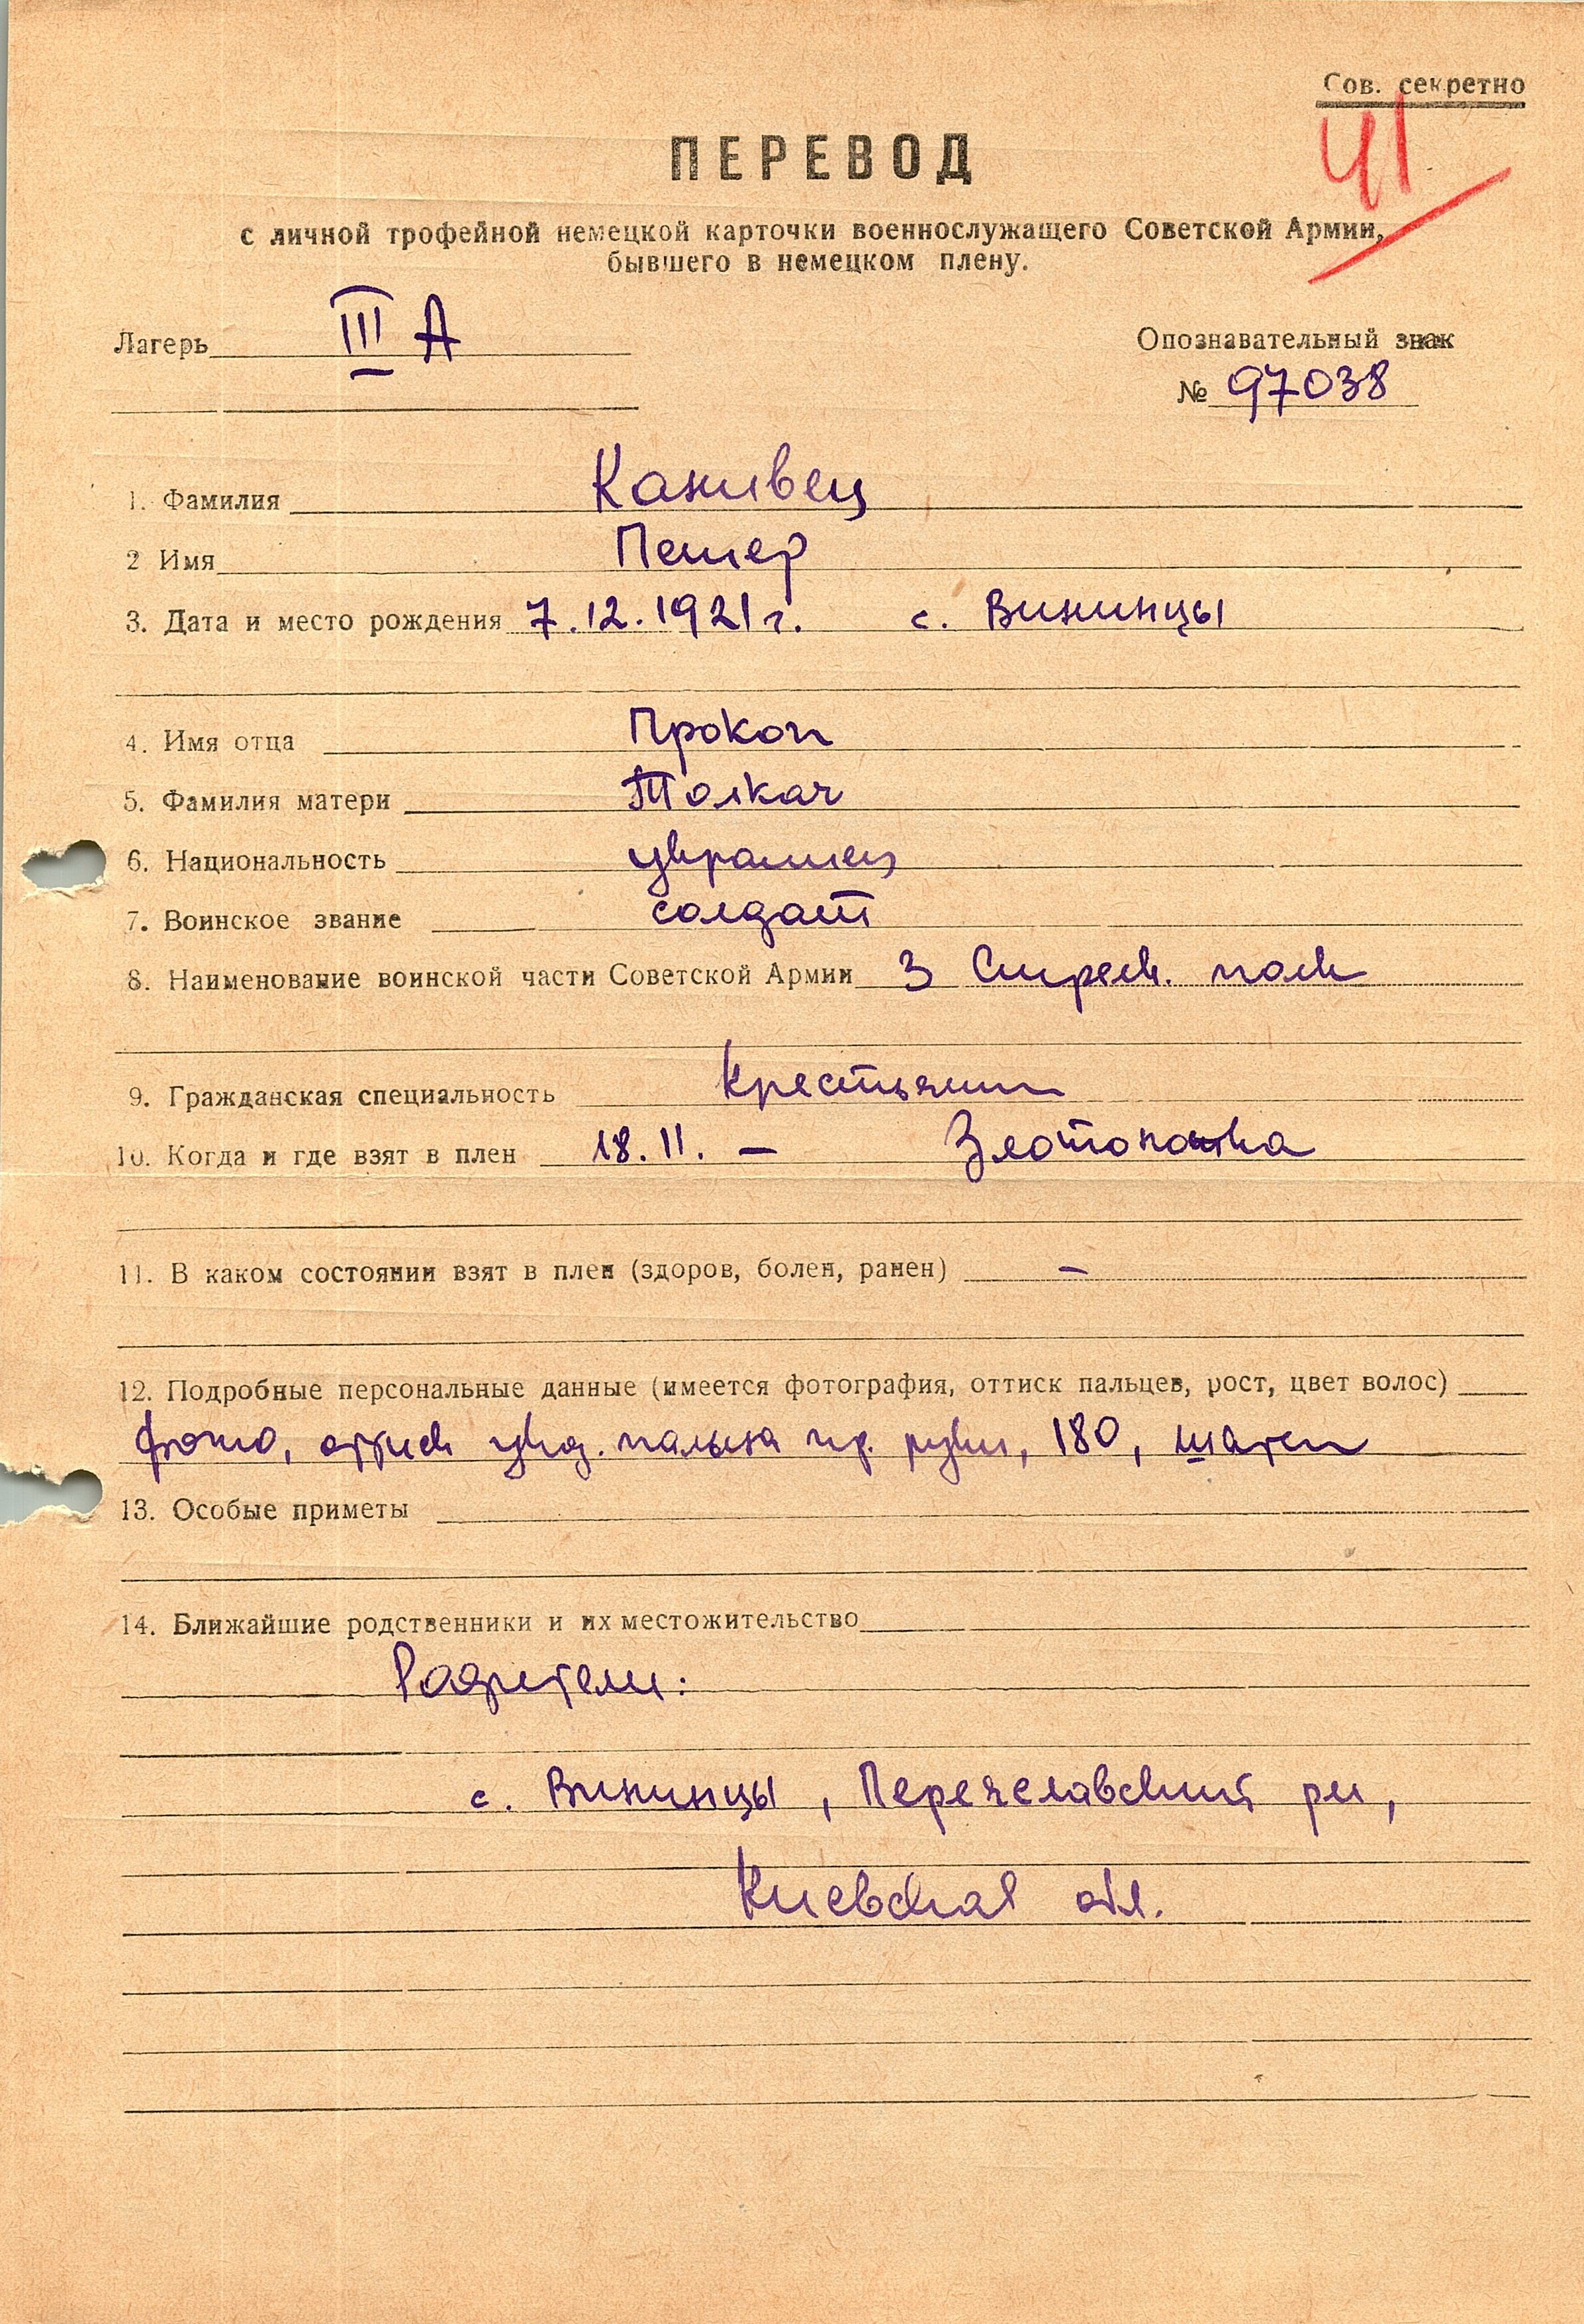 Сов. секретно
41
ПЕРЕВОД
с личной трофейной немецкой карточки военнослужащего Советской Армии,
бывшего в немецком плену.
Лагерь III А
Опознавательный знак
№ 97038
1. Фамилия Канивец
2 Имя Петер
3. Дата и место рождения 7.12.1921 г. с. Вининцы
4. Имя отца Прокоп
5. Фамилия матери Толкач
6. Национальность украинец
7. Воинское звание солдат
8. Наименование воинской части Советской Армии 3 Стрелк. полк
9. Гражданская специальность крестьянин
10. Когда и где взят в плен 18.11. —
11. В каком состоянии взят в плен (здоров, болен, ранен) –
12. Подробные персональные данные (имеется фотография, оттиск пальцев, рост, цвет волос)
фото, оттиск указ. пальца пр. руки, 180, шатен
13. Особые приметы
14. Ближайшие родственники и их местожительство
Родители:
с. Вининцы, Переяславский рн,
Киевская обл.